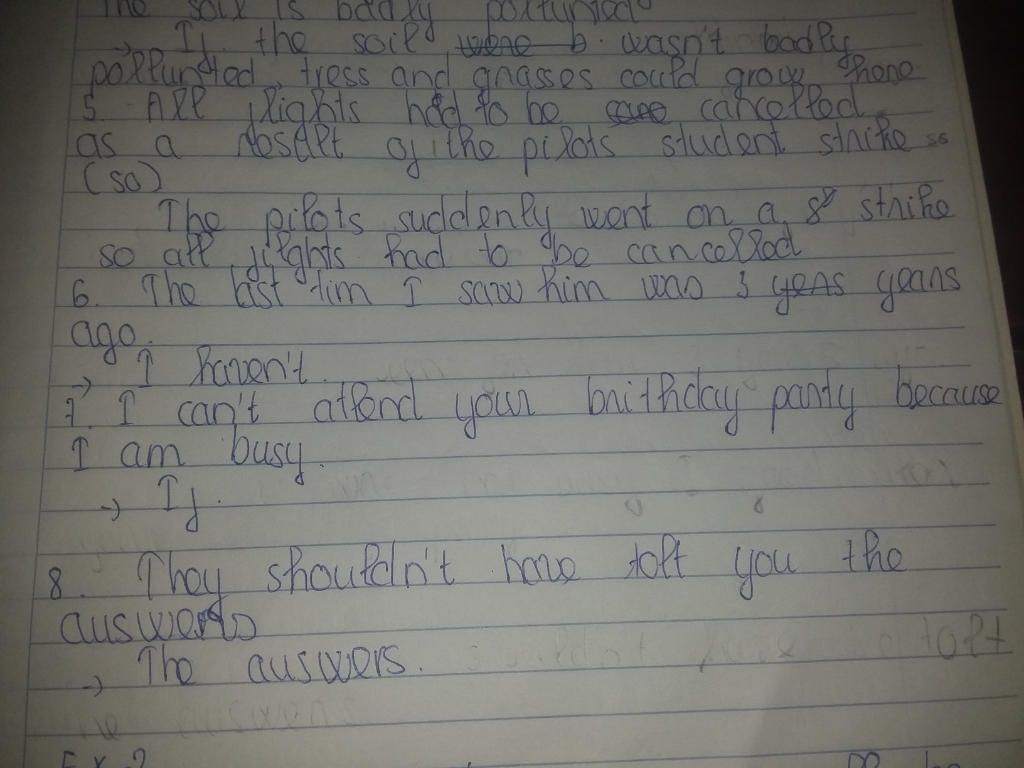 The soil is badly pollunted
→ If the soil were b wasn't badly
pollunted, tress and grasses could grow there
5. All flights had to be cancelled
as a result of the pilots student strike
(so)
The pilots suddenly went on a strike
so all flights had to be cancelled
6. The last tim I saw him was 3 yens years
ago.
→ I haven't.
7. I can't attend your brithday party because
I am busy.
→ If.
8. They shouldn't have tolt you the
answers
→ The auswers.
Ex 2